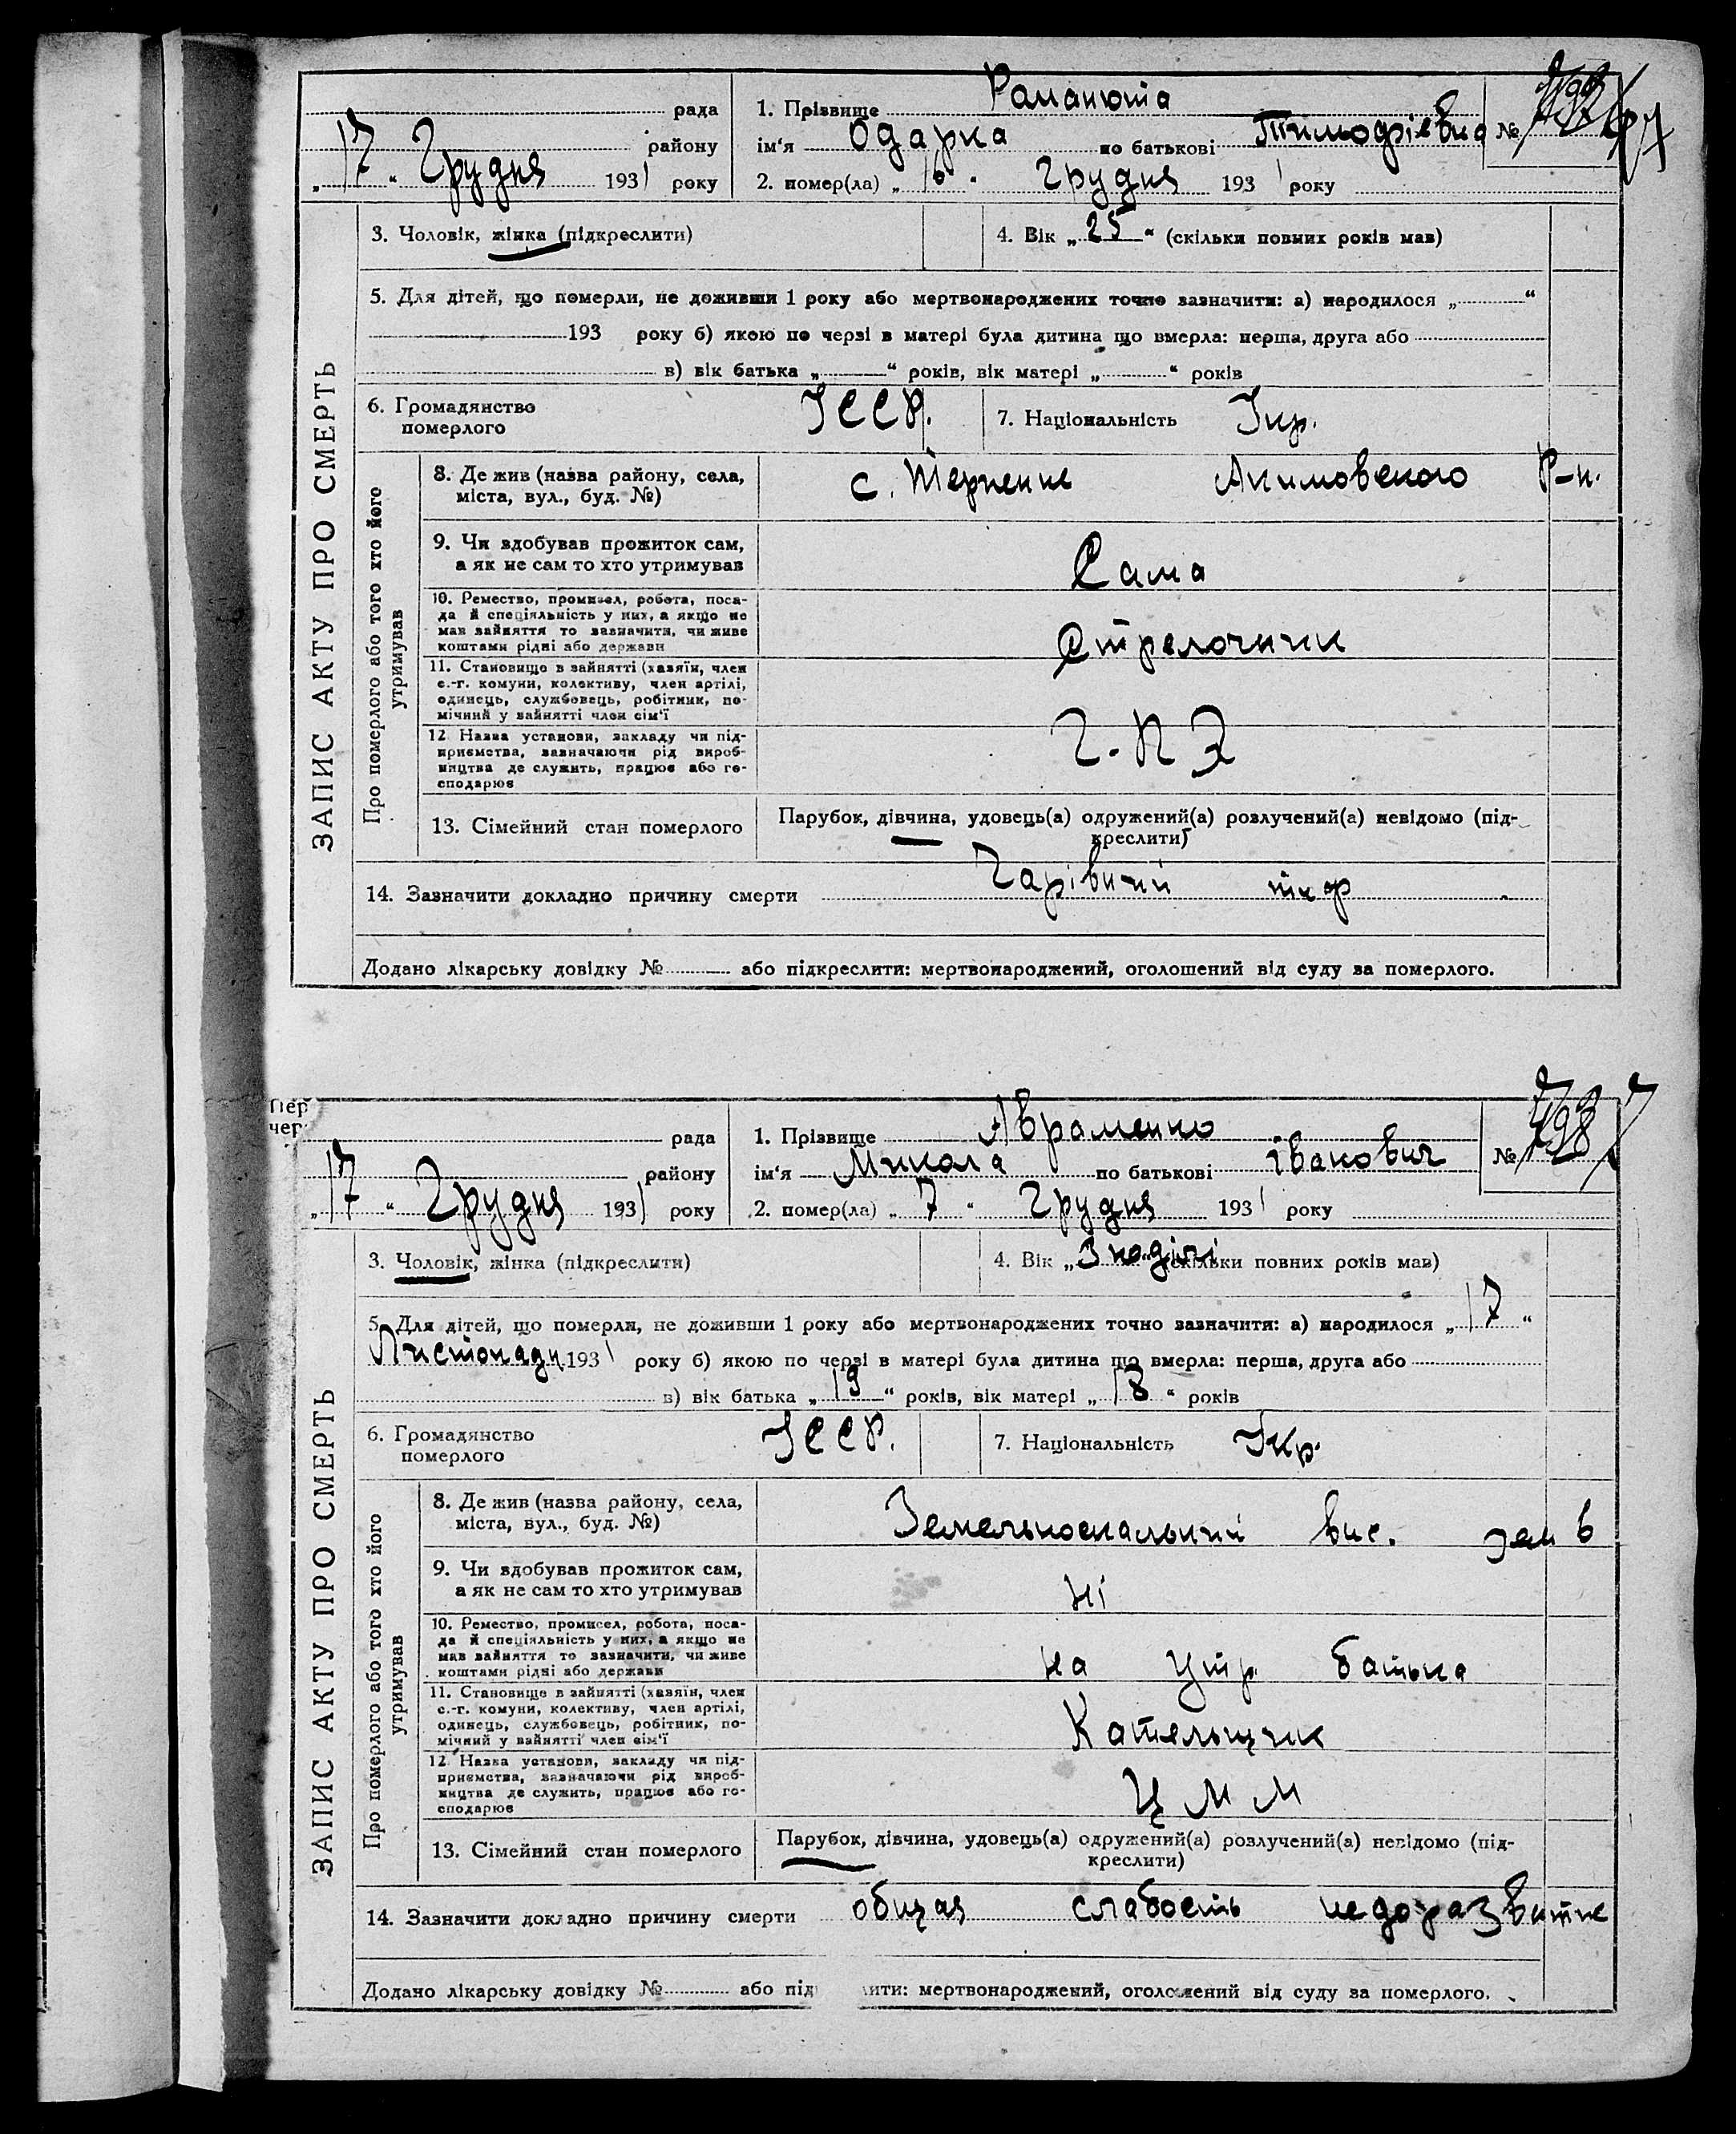 рада
1. Прізвище Раманюта
району
ім'я Одарка по батькові Тимофіївна №
„17“ Грудня 1931 року
2. помер(ла) „16“ Грудня 1931 року
ЗАПИС АКТУ ПРО СМЕРТЬ
3. Чоловік, жінка (підкреслити)
4. Вік „25“ (скільки повних років мав)
5. Для дітей, що померли, не доживши 1 року або мертвонароджених точно зазначити: а) народилося „ “
193 року б) якою по черзі в матері була дитина що вмерла: перша, друга або
в) вік батька „ “ років, вік матері „ “ років
6. Громадянство померлого УССР.
7. Національність Укр.
Про померлого або того хто його утримував
8. Де жив (назва району, села,
міста, вул., буд. №)
с. Терпение Акимовского Р-н.
9. Чи здобував прожиток сам,
а як не сам то хто утримував
Сама
10. Ремество, промисел, робота, поса-
да й спеціяльність у них, а якщо не
мав зайняття то зазначити, чи живе
коштами рідні або держави
Стрелочник
11. Становище в зайнятті (хазяїн, член
с.-г. комуни, колективу, член артілі,
одинець, службовець, робітник, по-
мічний у зайнятті член сім'ї
12 Назва установи, закладу чи під-
приємства, зазначаючи рід вироб-
ництва де служить, працює або го-
сподарює
13. Сімейний стан померлого
Парубок, дівчина, удовець(а) одружений(а) розлучений(а) невідомо (під-
креслити)
14. Зазначити докладно причину смерти
тиф
Додано лікарську довідку № або підкреслити: мертвонароджений, оголошений від суду за померлого.
Пер
чер
рада
1. Прізвище Авраменко
району
ім'я Микола по батькові Іванович №
„17“ Грудня 1931 року
2. помер(ла) „7“ Грудня 1931 року
ЗАПИС АКТУ ПРО СМЕРТЬ
3. Чоловік, жінка (підкреслити)
4. Вік „3 неділі (скільки повних років мав)
5. Для дітей, що померли, не доживши 1 року або мертвонароджених точно зазначити: а) народилося „17“
Листопаду 1931 року б) якою по черзі в матері була дитина що вмерла: перша, друга або
в) вік батька „19“ років, вік матері „18“ років
6. Громадянство померлого УССР.
7. Національність Укр.
Про померлого або того хто його утримував
8. Де жив (назва району, села,
міста, вул., буд. №)
вис. зем 6
9. Чи здобував прожиток сам,
а як не сам то хто утримував
Ні
10. Ремество, промисел, робота, поса-
да й спеціяльність у них, а якщо не
мав зайняття то зазначити, чи живе
коштами рідні або держави
на утр. батька
11. Становище в зайнятті (хазяїн, член
с.-г. комуни, колективу, член артілі,
одинець, службовець, робітник, по-
мічний у зайнятті член сім'ї
Кательщик
12 Назва установи, закладу чи під-
приємства, зазначаючи рід вироб-
ництва де служить, працює або го-
сподарює
Ц М М
13. Сімейний стан померлого
Парубок, дівчина, удовець(а) одружений(а) розлучений(а) невідомо (під-
креслити)
14. Зазначити докладно причину смерти общая слабость недоразвитие
Додано лікарську довідку № або під ити: мертвонароджений, оголошений від суду за померлого.